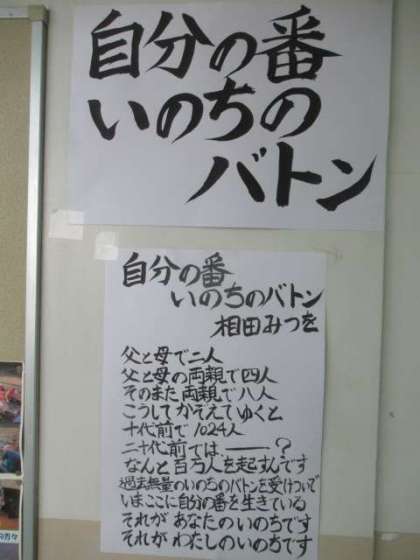 自分の番
いのちの
バトン
自分の番
いのちのバトン
相田みつを
父と母で二人
父と母の両親で四人
そのまた両親で八人
こうしてかぞえてゆくと
十代前で1024人
二十代前では――?
なんと百万人を起すんです
過去無量のいのちのバトンを受けついで
いまここに自分の番を生きている
それがあなたのいのちです
それがわたしのいのちです